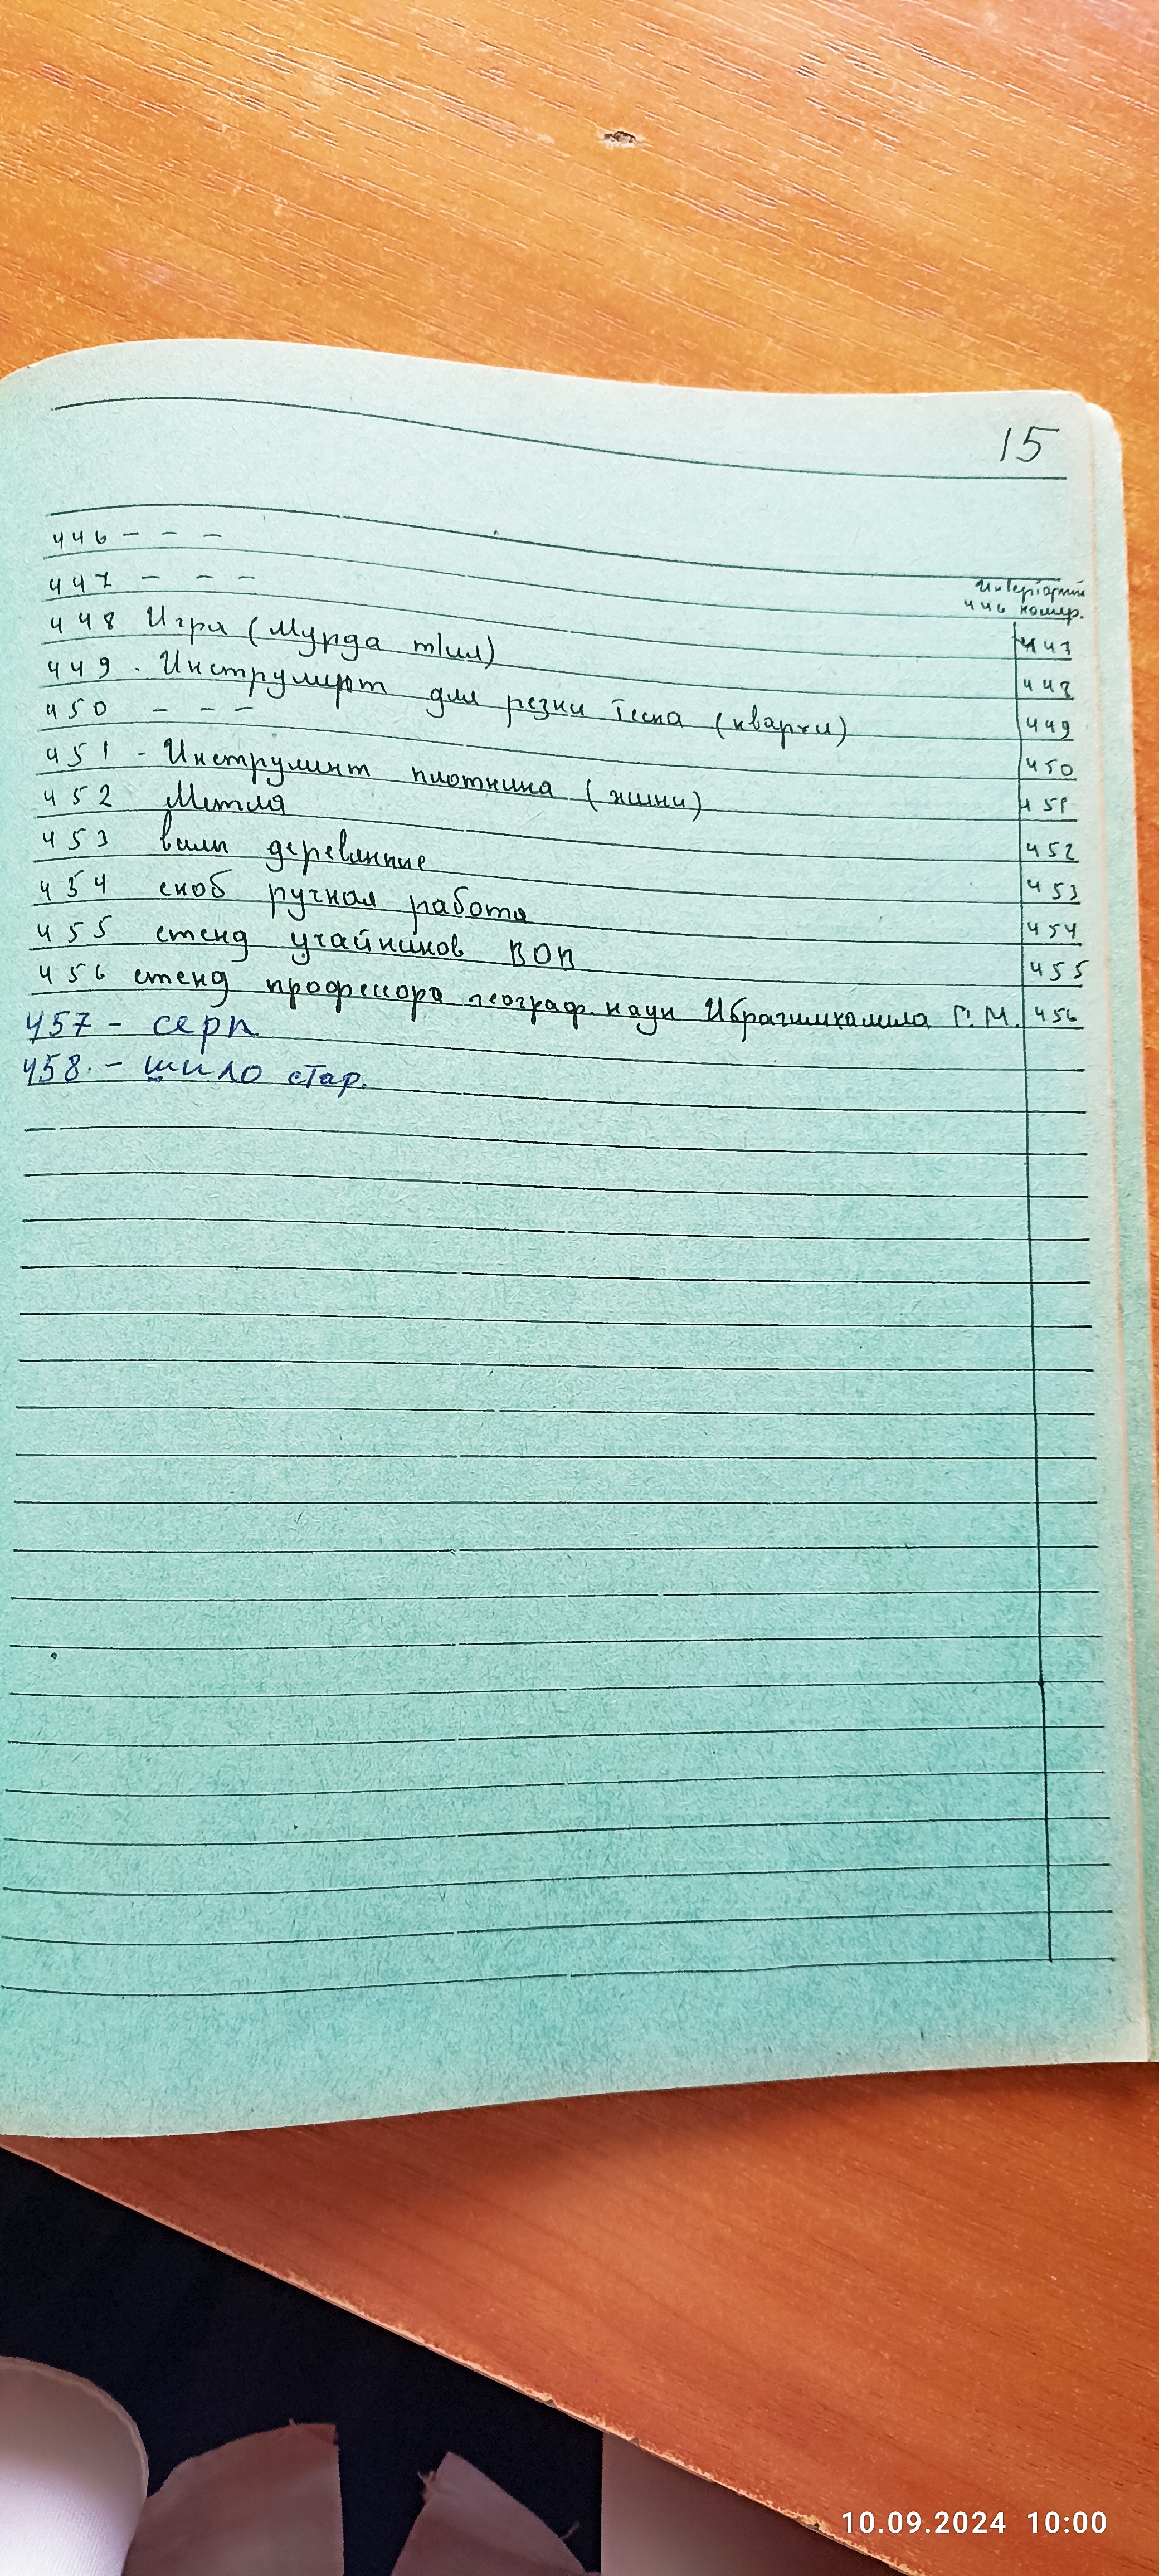 15
446 - - -
447 - - -
448 Игра (Мурда тIил)
449. Инструмент для резки теста (кварчи)
450 - - -
451 - Инструмент плотника (жини)
452 Метла
453 вилы деревянные
454 скоб ручная работа
455 стенд учайников ВОВ
456 стенд профессора географ. наук Ибрагимхамила Г. М.
457 - серп
458. - шило стар.
номер.
446
447
448
449
450
451
452
453
454
455
456
10.09.2024 10:00